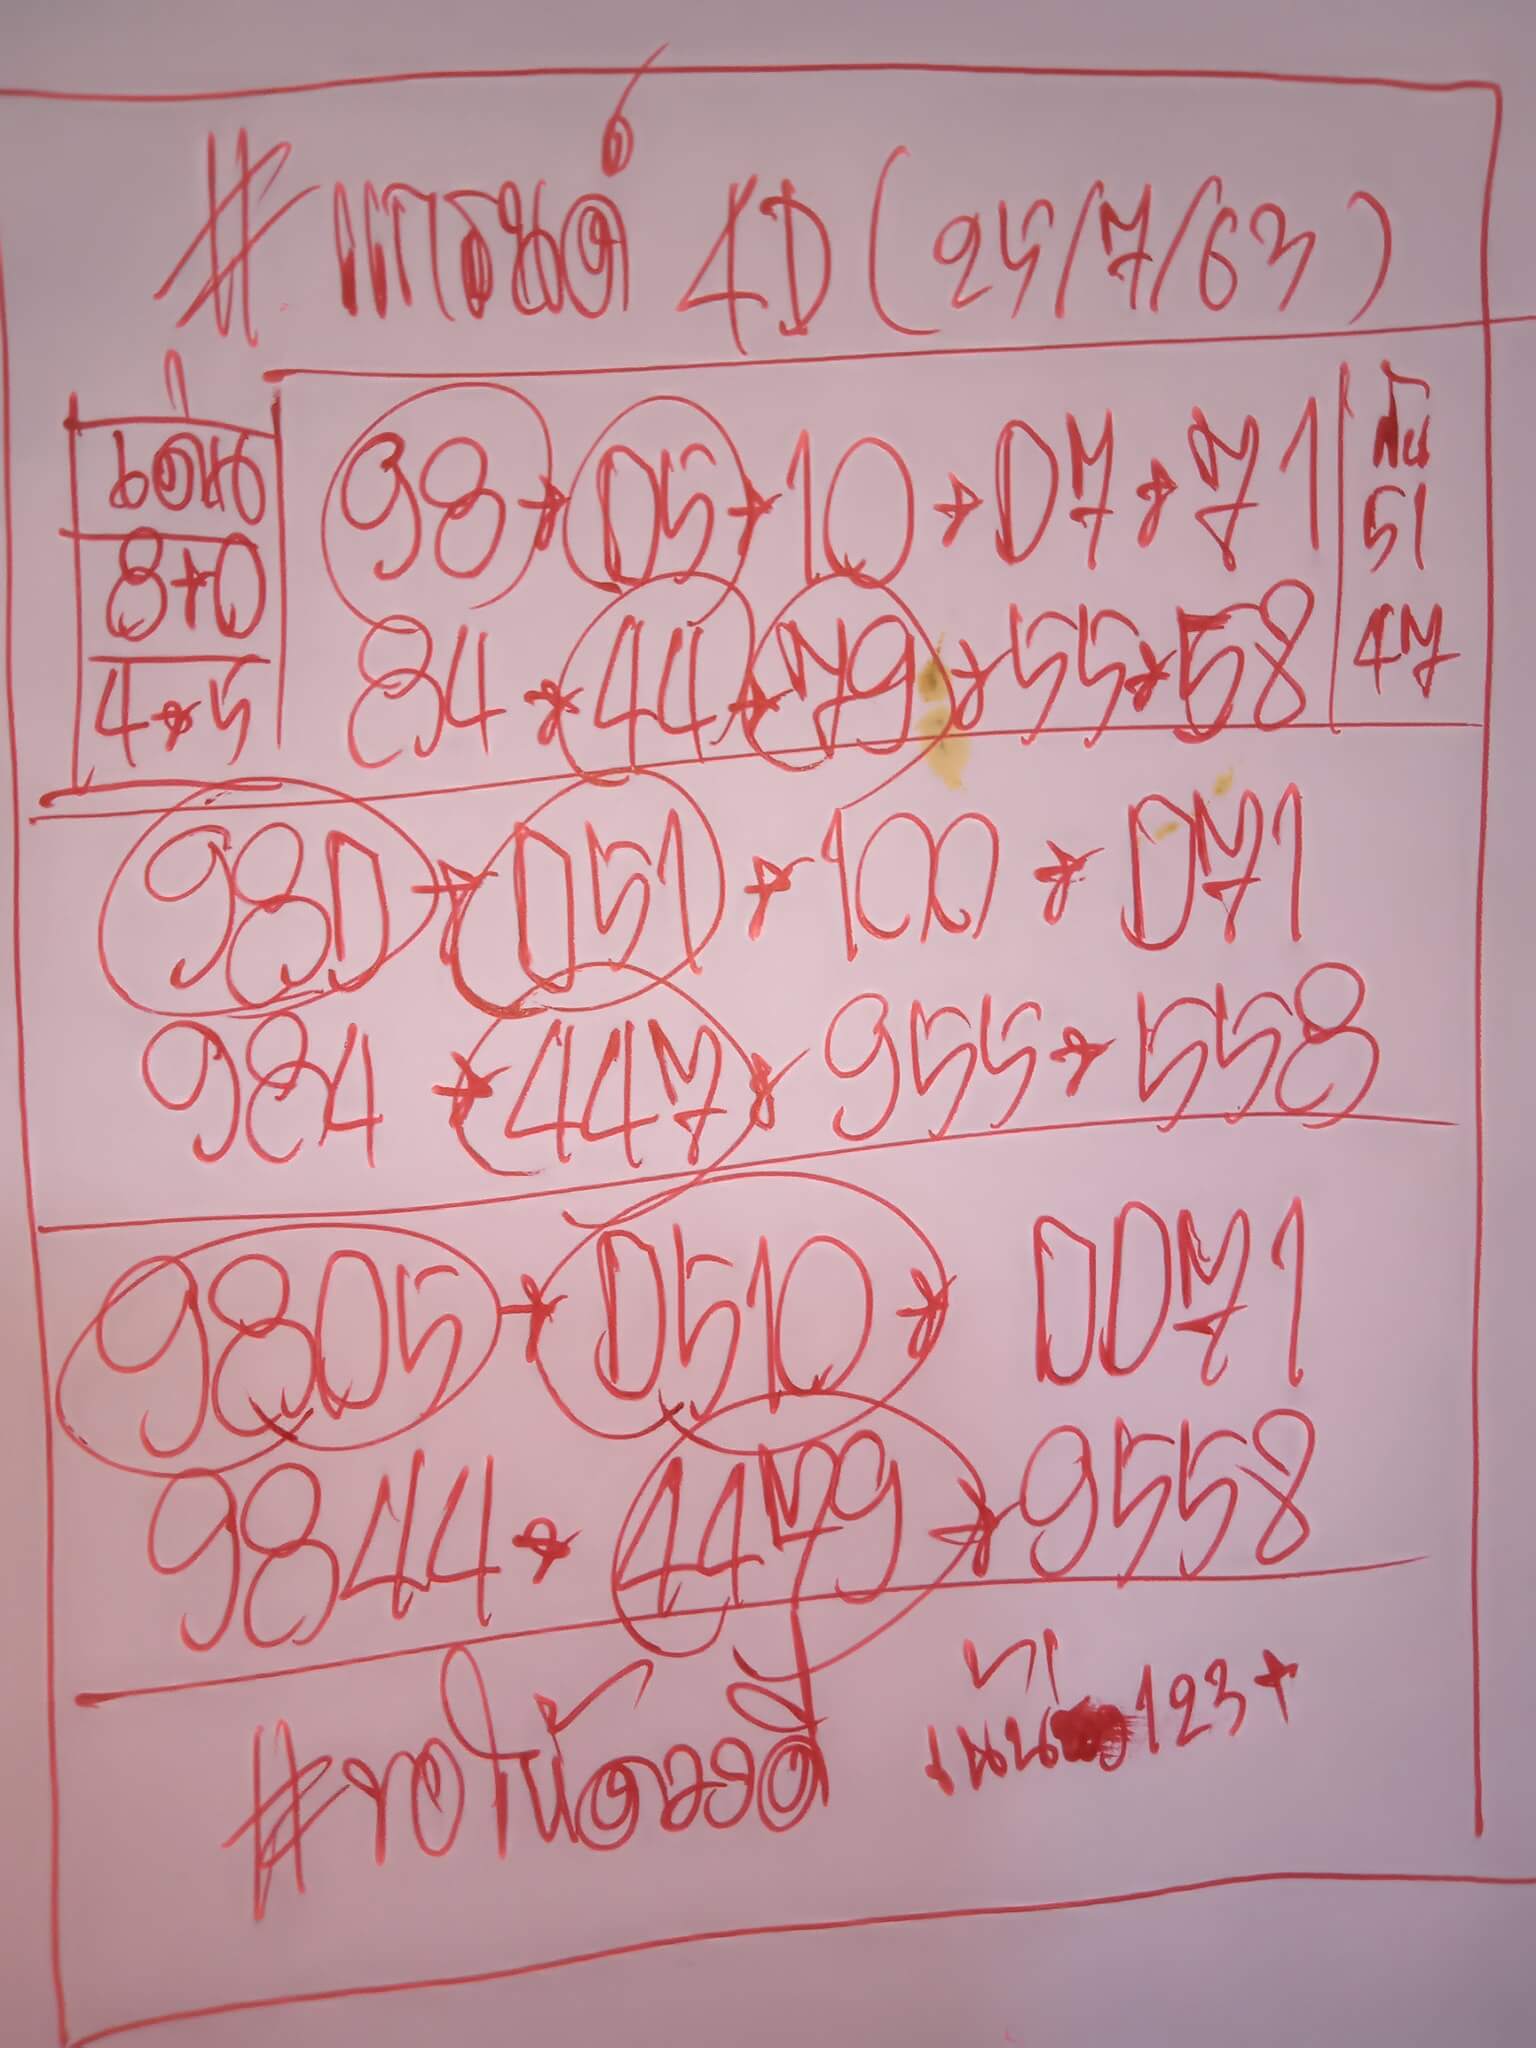 # มาเลย์ 4D (25/7/63)
เด่น
98 + 05 + 10 + 07 + 71
8+0
84 + 44 + 79 + 55 + 58
4+5
51
47
980 + 051 + 100 + 071
984 + 447 + 955 + 558
9805 + 0510 + 0071
9844 + 4479 + 9558
#ขอให้โชคดี
123+